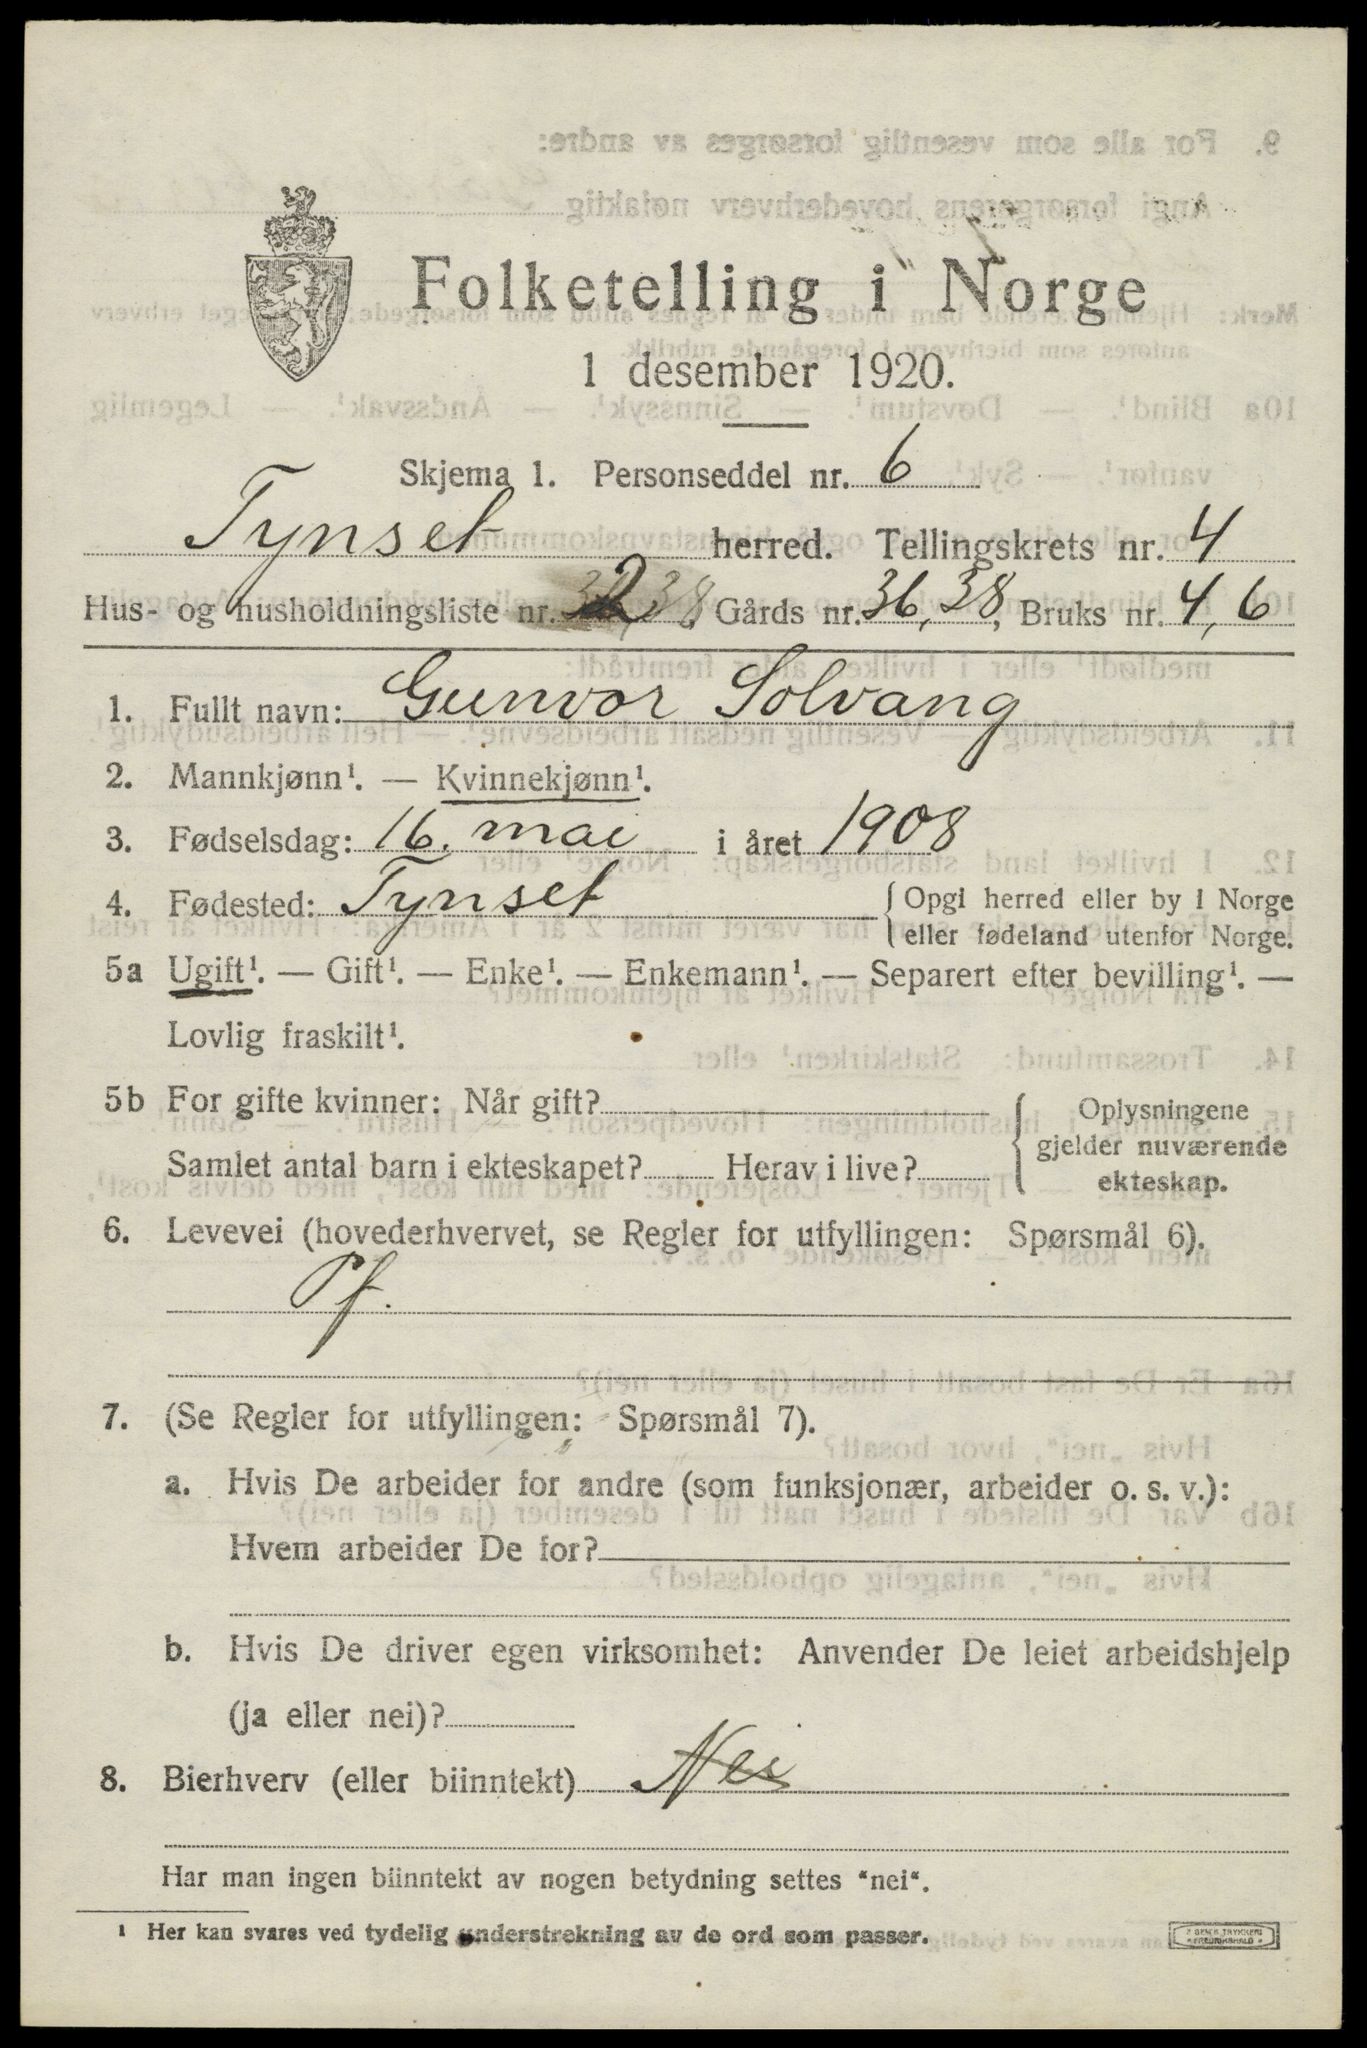 Folketelling i Norge
1 desember 1920.
Skjema 1. Personseddel nr. 6
Tynset herred. Tellingskrets nr. 4
Hus- og husholdningsliste nr. 2, Gårds nr. 36, 38, Bruks nr. 4, 6
1. Fullt navn: Gunvor Solvang
2. Mannkjønn¹. — Kvinnekjønn¹.
3. Fødselsdag: 16. mai i året 1908
4. Fødested: Tynset { Opgi herred eller by i Norge
eller fødeland utenfor Norge.
5a Ugift¹. — Gift¹. — Enke¹. — Enkemann¹. — Separert efter bevilling¹. —
Lovlig fraskilt¹.
5b For gifte kvinner: Når gift? { Oplysningene
gjelder nuværende
Samlet antal barn i ekteskapet? Herav i live? ekteskap.
6. Levevei (hovederhvervet, se Regler for utfyllingen: Spørsmål 6).
Pf.
7. (Se Regler for utfyllingen: Spørsmål 7).
a. Hvis De arbeider for andre (som funksjonær, arbeider o. s. v.):
Hvem arbeider De for?
b. Hvis De driver egen virksomhet: Anvender De leiet arbeidshjelp
(ja eller nei)?
8. Bierhverv (eller biinntekt) Nei
Har man ingen biinntekt av nogen betydning settes "nei".
¹ Her kan svares ved tydelig understrekning av de ord som passer.